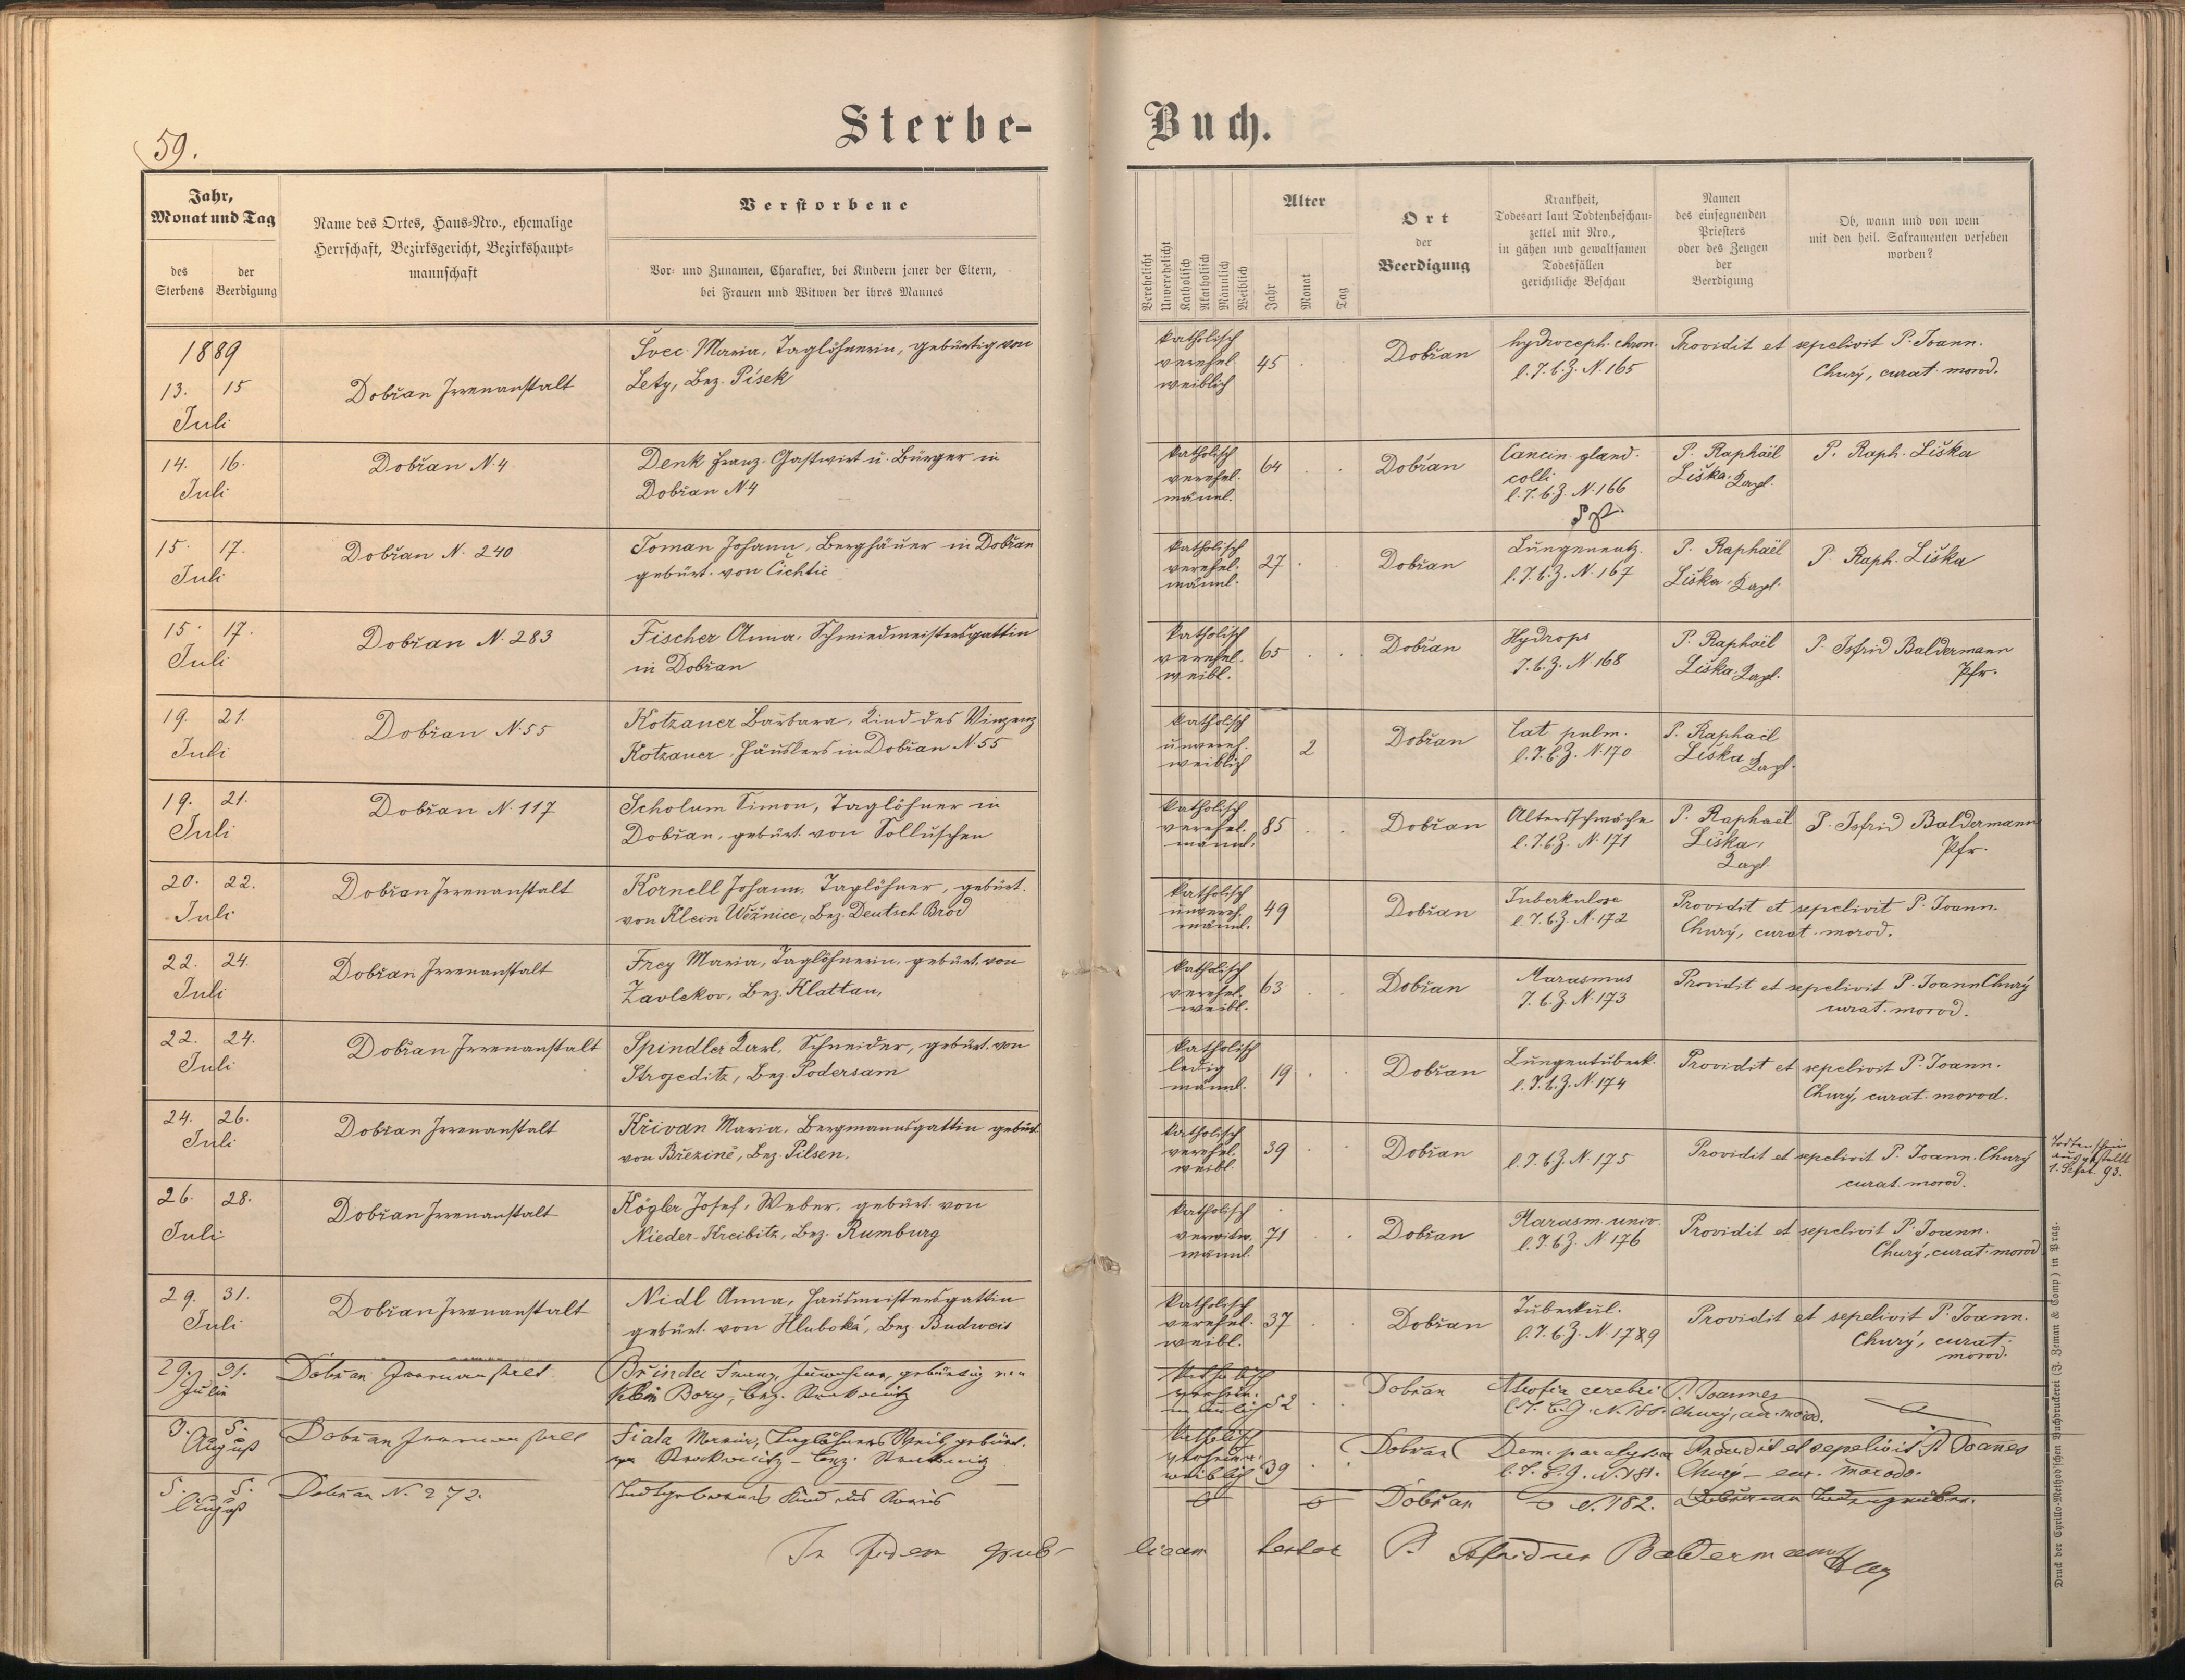 59.
Sterbe-Buch.
Jahr,
Monat und Tag
des Sterbens
der Beerdigung
Name des Ortes, Haus-Nro., ehemalige
Herrschaft, Bezirksgericht, Bezirkshaupt-
mannschaft
Verstorbene
Vor- und Zunamen, Charakter, bei Kindern jener der Eltern,
bei Frauen und Witwen der ihres Mannes
Verehelicht
Unverehelicht
Katholisch
Akatholisch
Männlich
Weiblich
Alter
Jahr
Monat
Tag
Ort
der
Beerdigung
Krankheit,
Todesart laut Todtenbeschau-
zettel mit Nro.,
in gähen und gewaltsamen
Todesfällen
gerichtliche Beschau
Namen
des einsegnenden
Priesters
oder des Zeugen
der
Beerdigung
Ob, wann und von wem
mit den heil. Sakramenten versehen
worden?
1889
13. 15
Juli
Dobřan Irrenanstalt
Švec Maria, Taglöhnerin, gebürtig von
Lety, Bez. Písek
katholisch
verehel.
weiblich
45
Dobřan
hydroceph. chron.
l. T. b. Z. N. 165
Providit et sepelivit P. Joann.
Churý, curat. morod.
14. 16.
Juli
Dobřan N. 4
Denk Franz, Gastwirt u. Bürger in
Dobřan N 4
katholisch
verehel.
männl.
64
Dobřan
Cancin. gland.
colli
l. T. b. Z. N. 166
P. Raphaël
Liška, Kapl.
P. Raph. Liška
15. 17.
Juli
Dobřan N. 240
Toman Johann, Berghäuer in Dobřan
gebürt. von Čichtic
katholisch
verehel.
männl.
27
Dobřan
Lungenentz.
l. T. b. Z. N. 167
P. Raphaël
Liška, Kapl.
P. Raph. Liška
15. 17.
Juli
Dobřan N. 283
Fischer Anna, Schmiedmeistersgattin
in Dobřan
katholisch
verehel.
weibl.
65
Dobřan
Hydrops
T. b. Z. N. 168
P. Raphaël
Liška, Kapl.
P. Isfrid Baldermann
Pfr.
19. 21.
Juli
Dobřan N. 55
Kotzauer Barbara, Kind des Vinzenz
Kotzauer, Häuslers in Dobřan N 55
katholisch
unvereh.
weiblich
2
Dobřan
Cat. pulm.
l. T. b. Z. N. 170
P. Raphaël
Liška Kapl.
19. 21.
Juli
Dobřan N. 117
Scholum Simon, Taglöhner in
Dobřan, gebürt. von Solluschen
katholisch
verehel.
männl.
85
Dobřan
Altersschwäche
l. T. b. Z. N. 171
P. Raphaël
Liška,
Kapl.
P. Isfrid Baldermann
Pfr.
20. 22.
Juli
Dobřan Irrenanstalt
Kornell Johann, Taglöhner, gebürt.
von Klein Wěžnice, Bez. Deutsch Brod
katholisch
unvereh.
männl.
49
Dobřan
Tuberkulose
l. T. b. Z. N. 172
Providit et sepelivit P. Joann.
Churý, curat. morod.
22. 24.
Juli
Dobřan Irrenanstalt
Frey Maria, Taglöhnerin, gebürt. von
Zavlekov, Bez. Klattau,
katholisch
verehel.
weibl.
63
Dobřan
Marasmus
T. b. Z. N. 173
Providit et sepelivit P. Joann Churý
curat. morod.
22. 24.
Juli
Dobřan Irrenanstalt
Spindler Karl, Schneider, gebürt. von
Strojeditz, Bez. Podersam
katholisch
ledig
männl.
19
Dobřan
Lungentuberk.
l. T. b. Z. N. 174
Providit et sepelivit P. Joann.
Churý, curat. morod.
24. 26.
Juli
Dobřan Irrenanstalt
Křivan Maria, Bergmannsgattin gebürt.
von Březině, Bez. Pilsen.
katholisch
verehel.
weibl.
39
Dobřan
l. T. b. Z. N. 175
Providit et sepelivit P. Joann. Churý
curat. morod.
Todtenschein
ausgestellt
1. Sept. 93.
26. 28.
Juli
Dobřan Irrenanstalt
Kögler Josef, Weber, gebürt. von
Nieder-Kreibitz, Bez. Rumburg
katholisch
verwitw.
männl.
71
Dobřan
Marasm. univ.
l. T. b. Z. N 176
Providit et sepelivit P. Joann.
Churý, curat. morod
29. 31.
Juli
Dobřan Irrenanstalt
Nidl Anna, Hausmeistersgattin
gebürt. von Hluboká, Bez. Budweis
katholisch
verehel.
weibl.
37
Dobřan
Tuberkul.
l. T. b. Z. N. 179
Providit et sepelivit P. Joann.
Churý, curat.
morod.
29. 31.
Juli
Dobřan Irrenanstalt
Břinda Franz, gebürtig von
Klein Bory, Bez.
katholisch
männlich
52
Dobřan
Atrofia cerebri
l. T. b. Z. N. 180.
P. Joannes
Churý, cur. morod.
3. 5.
August
Dobřan Irrenanstalt
Fiala Maria, Taglöhners Weib, gebürt.
katholisch
weiblich
39
Dobřan
Dem. paralytica
l. T. b. Z. N. 181.
Providit et sepelivit P. Joannes
Churý – cur. morod.
5. 5.
August
Dobřan N. 272.
Todtgeborenes Kind des
Dobřan
N. 182.
In fidem publicam testor P. Isfridus Baldermann
Druck der Cyrillo-Method'schen Buchdruckerei (J. Zeman & Comp.) in Prag.